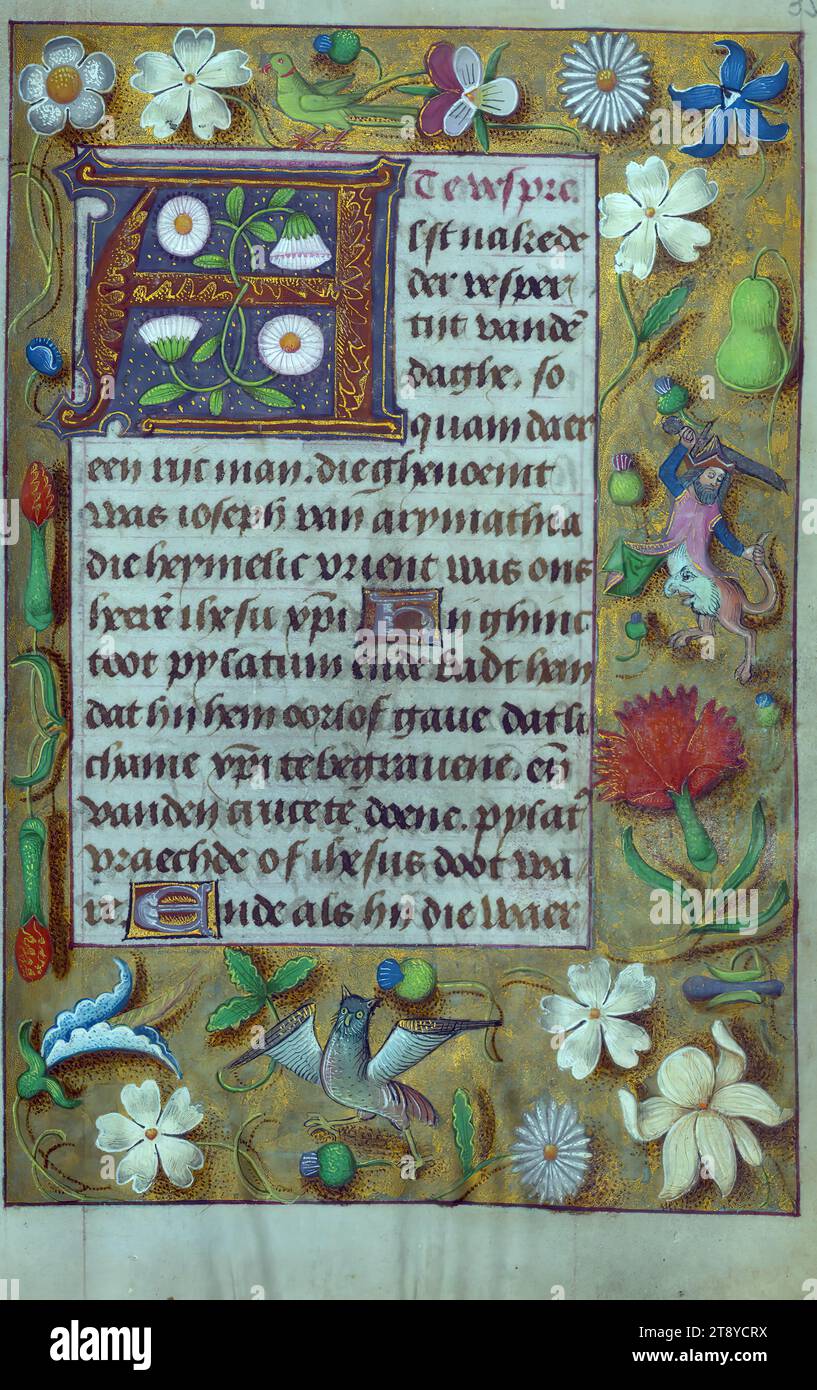 Te vespre.
Alst nakede
der vesper
tijt vandē
daghe. so
quam daer
een rijc man. die ghenoemt
was ioseph van arymathia
die heymelic vrient was ons
heerē ihesu xp̄i Hij ghinc
toot pylatum ende badt hem
dat hij hem oorlof gaue dat li
chame xp̄i te begrauene. eñ
vanden cruce tē doene. pylat᷒
vraechde of ihesus doot wa
re. Ende als hij die waer
alamy
Image ID: 2T8YCRX
www.alamy.com